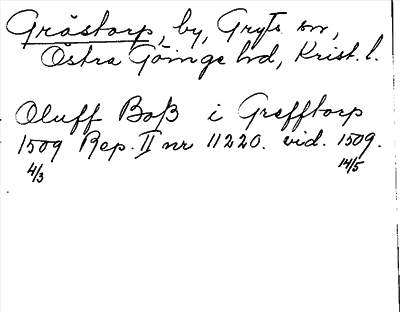 Gråstorp, by, Gryts sn,
Östra Göinge hd, Krist. l.
Oluff Boß i Grefftorp
1509 Rep. II nr 11220. vid. 1509.
4/3 14/5